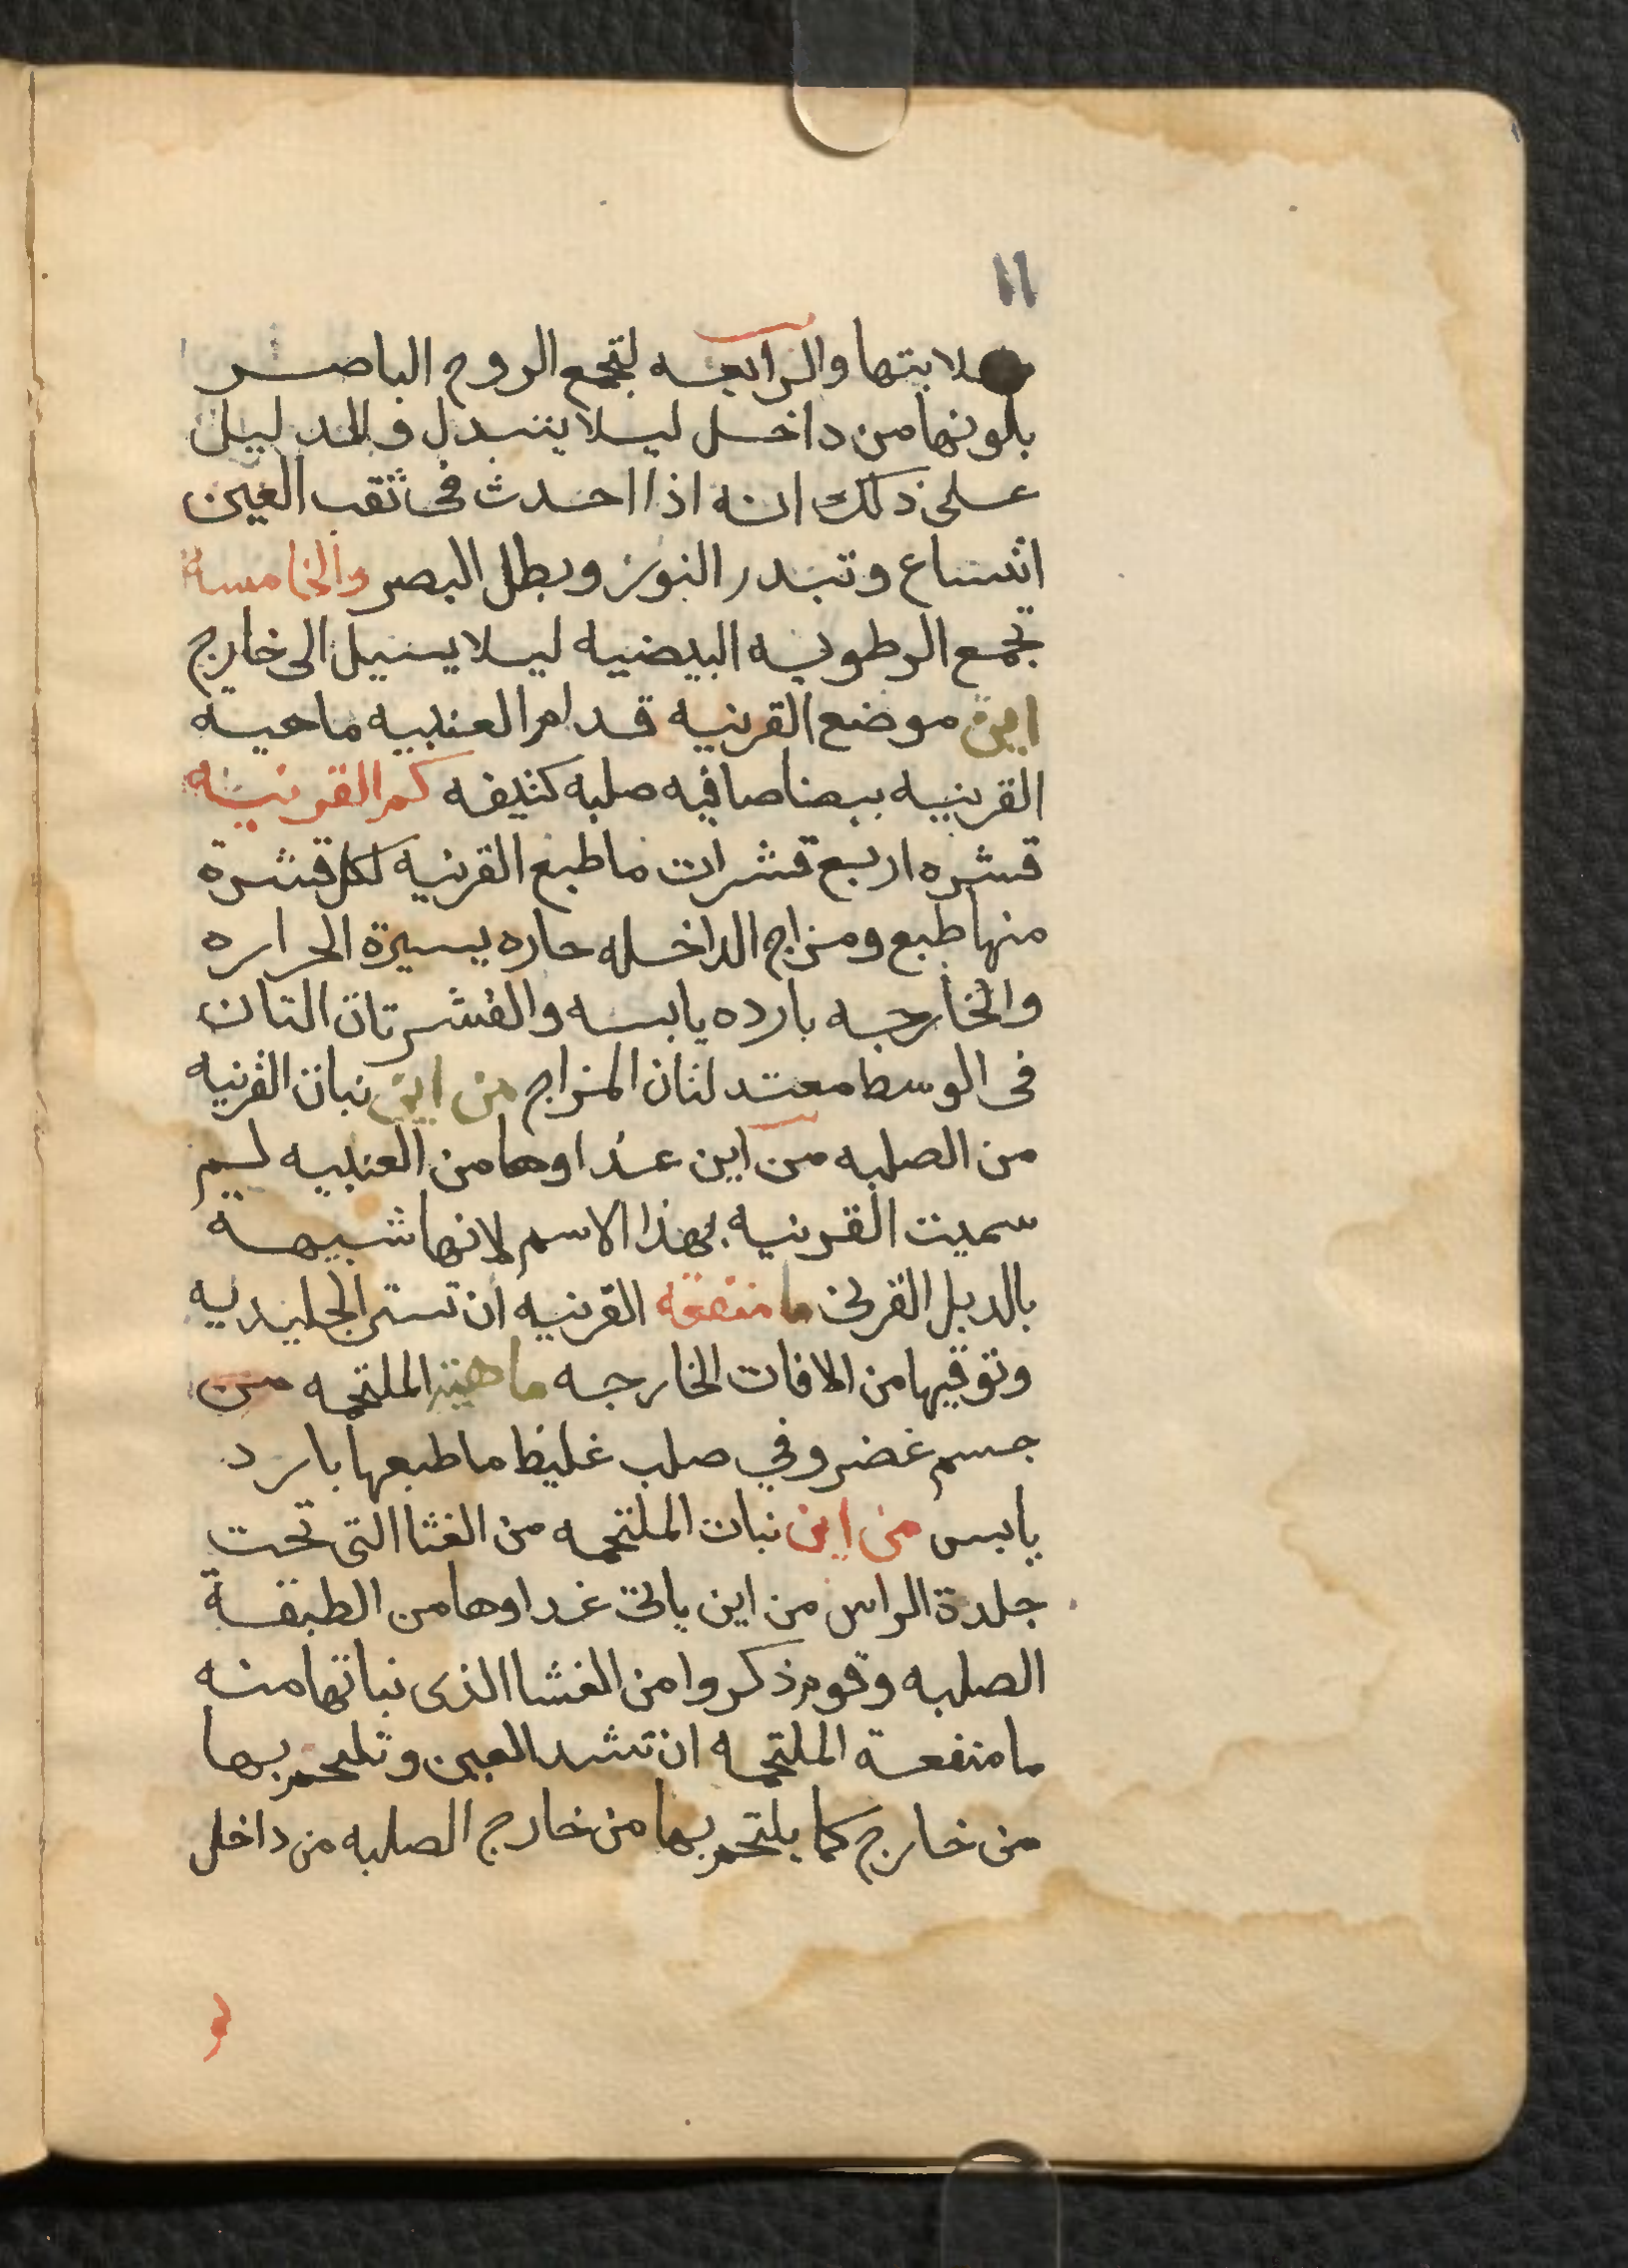 ١١
صلابتها والرابعه لتجمع الروح الباصر
بلونها من داخل ليلا يتبدل والدليل
على ذلك انه اذا احدث فى ثقب العين
اتساع وتبدر النور وبطل البصر والخامسة
تجمع الرطوبه البيضيه ليلا يسيل الى خارج
اين موضع القرنيه قدام العنبيه ماهية
القرنيه بيضا صافيه صلبه كثيفه كم القرنيه
قشره اربع قشرات ما طبع القرنيه لكل قشرة
منها طبع ومزاج الداخله حاره يسيرة الحراره
والخارجه بارده يابسه والقشرتان التان
فى الوسط معتدلتان المزاج من اين نبات القرنيه
من الصلبه من اين غداوها من العنبيه لم
سميت القرنيه بهذا الاسم لانها شبيهة
بالدبل القرنى ما منفعة القرنيه ان تستر الجليديه
وتوقيها من الافات الخارجه ما هية الملتحمه من
جسم غضروفي صلب غليظ ما طبعها بارد
يابس من اين نبات الملتحمه من الغشا التى تحت
جلدة الراس من اين ياتى غداوها من الطبقة
الصلبه وقوم ذكروا من الغشا الذى نباتها منه
ما منفعة الملتحمه ان تشد العين وتلتحم بها
من خارج كما يلتحم بها من خارج الصلبه من داخل